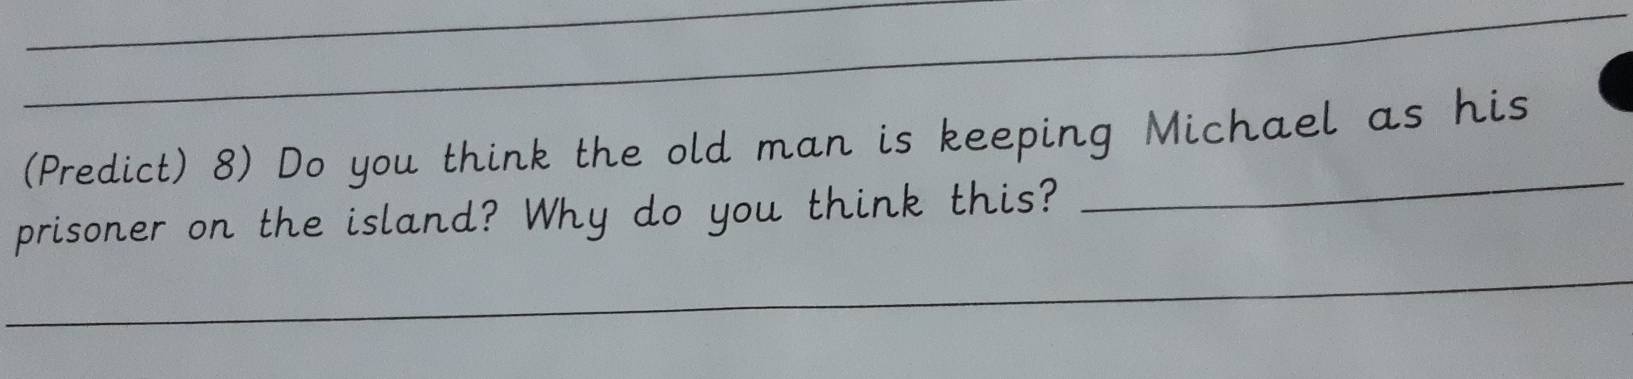 (Predict) 8) Do you think the old man is keeping Michael as his
prisoner on the island? Why do you think this?